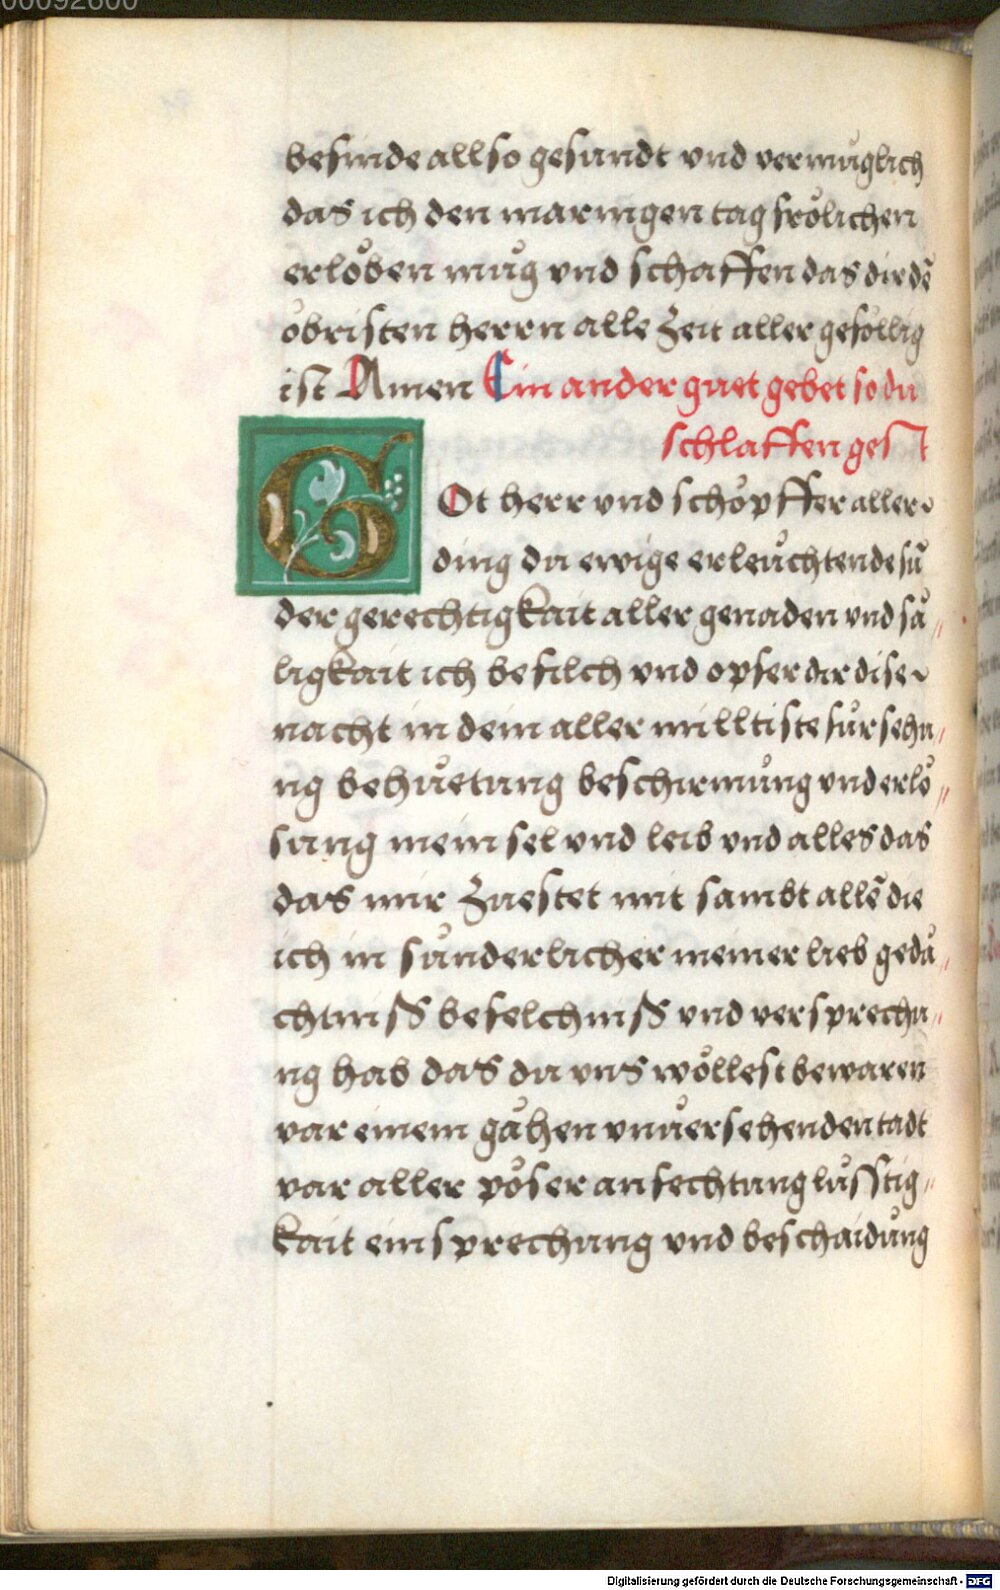 00092600
befinde allso gesundt vnd vermuglich
das ich den maringen tag frölichen
erlöben mug vnd schaffen das dir dē
obristen herrn alle Zeit aller gefollig
ist Amen Ein ander guet gebet so du
schlaffen gest
Got herr vnd schöpffer aller
ding du ewige erleuchtende sū
der gerechtigkait aller genaden vnd sä„
ligkait ich befilch vnd opfer dir dise
nacht in dein aller milltiste fürsehu„
ng behüetung beschirmung vnd erlö„
sung mein sel vnd leib vnd alles das
das mir Zuestet mit sambt allē die
ich in sunderlicher meiner lieb gedä„
chtniss befelchniss vnd versprechu„
ng hab das du vns wöllest bewaren
var einem gähen vnuersehenden tadt
var aller pöser anfechtung lusstig„
kait einsprechung vnd beschaidung
Digitalisierung gefördert durch die Deutsche Forschungsgemeinschaft - DFG